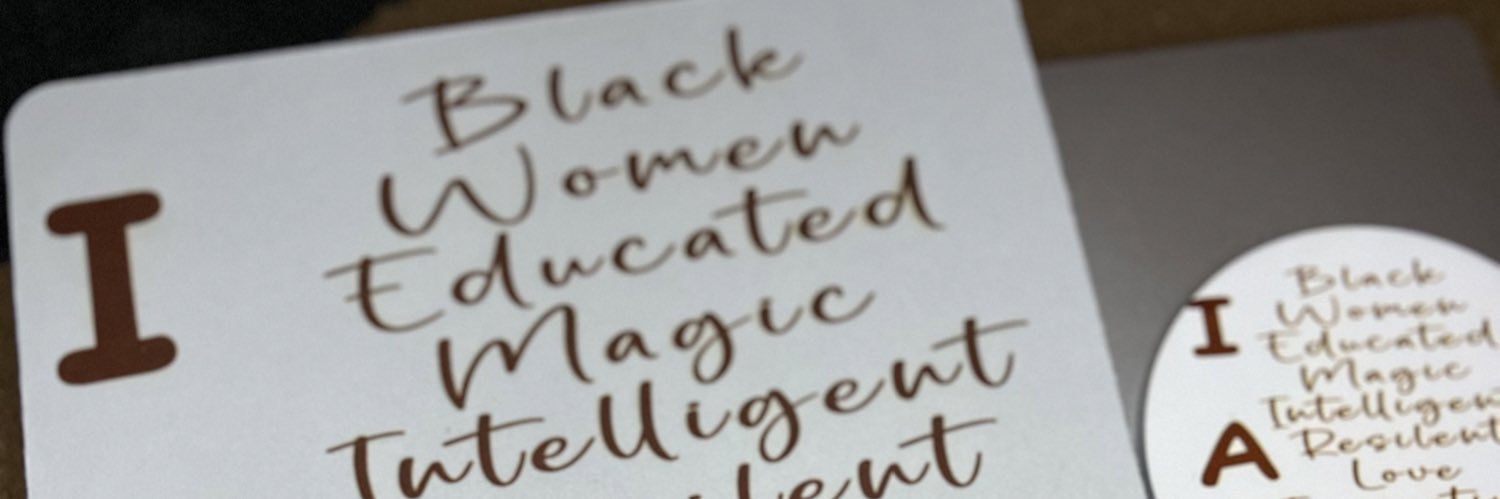 I
Black
Women
Educated
Magic
Intelligent
I
Black
Women
Educated
Magic
Intelligent
A
Resilent
Love